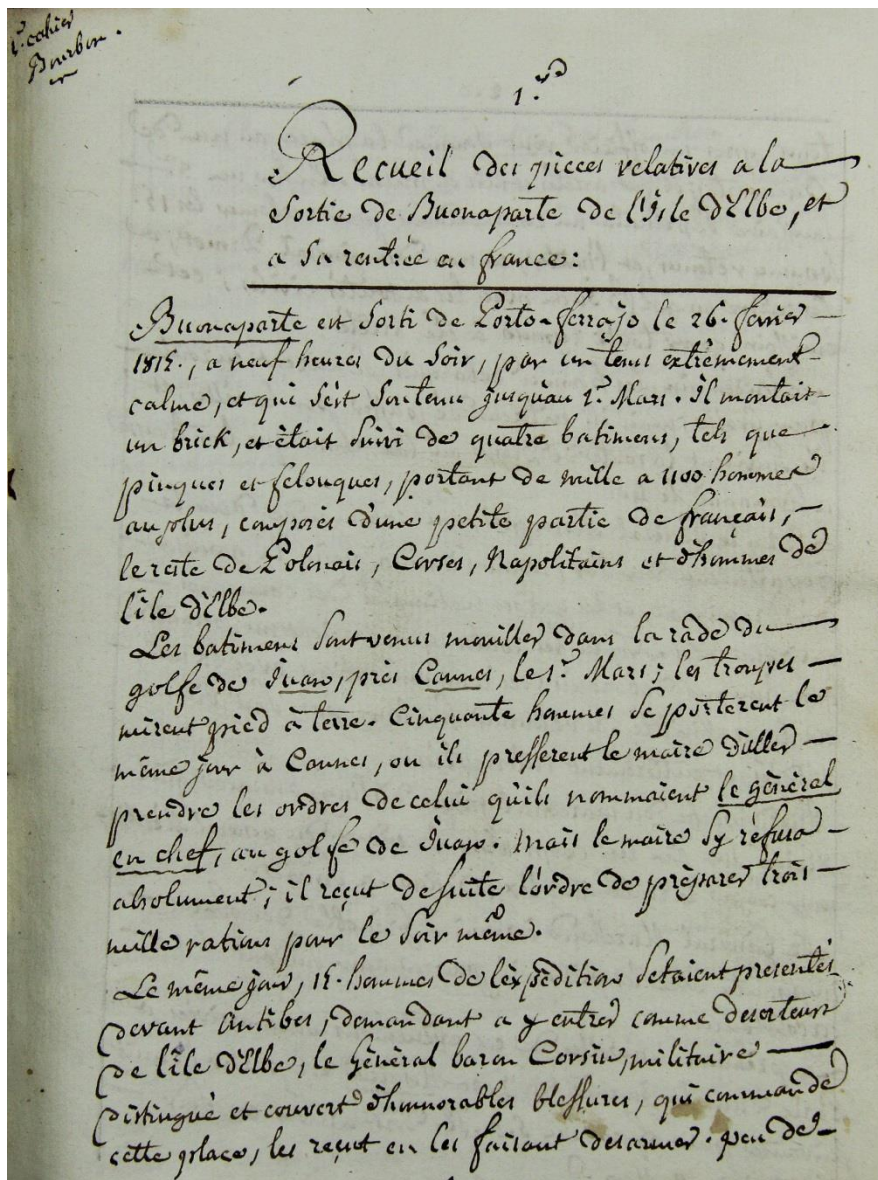 1.r cahier
Bourbon.
1.re
Recueil des pieces relatives a la
Sortie de Buonaparte de l'Isle d'Elbe, et
a sa rentrée en france:
Buonaparte est Sorti de Porto-ferrajo le 26. fevrier
1815., a neuf heures du Soir, par un tems extrêmement
calme, et qui s'èst Soutenu jusqu'au 1.r Mars. Il montait
un brick, et ètait Suivi de quatre batimens, tels que
pinques et felouques, portant de mille a 1100 hommes
au plus, composés d'une petite partie de français,
le reste de Polonais, Corses, Napolitains et d'hommes de
l'île d'Elbe.
Les batimens Sont venus mouiller dans la rade du
golfe de Juan, près Cannes, le 1.r Mars; les troupes
mirent pied à terre. Cinquante hommes se porterent le
même jour à Cannes, ou ils presserent le maire d'aller
prendre les ordres de celui qu'ils nommaient le gènèral
en chef, au golfe de Juan. Mais le maire s'y refusa
absolument; il reçut de suite l'ordre de prèparer trois
mille rations pour le Soir même.
Le même jour, 15. hommes de l'expèdition s'etaient presentès
devant Antibes, demandant a y entrer comme deserteurs
de l'île d'Elbe, le Gènèral baron Corsin, militaire
distinguè et couvert d'honnorables blessures, qui commande
cette place, les reçut en les faisant desarmer. peu de